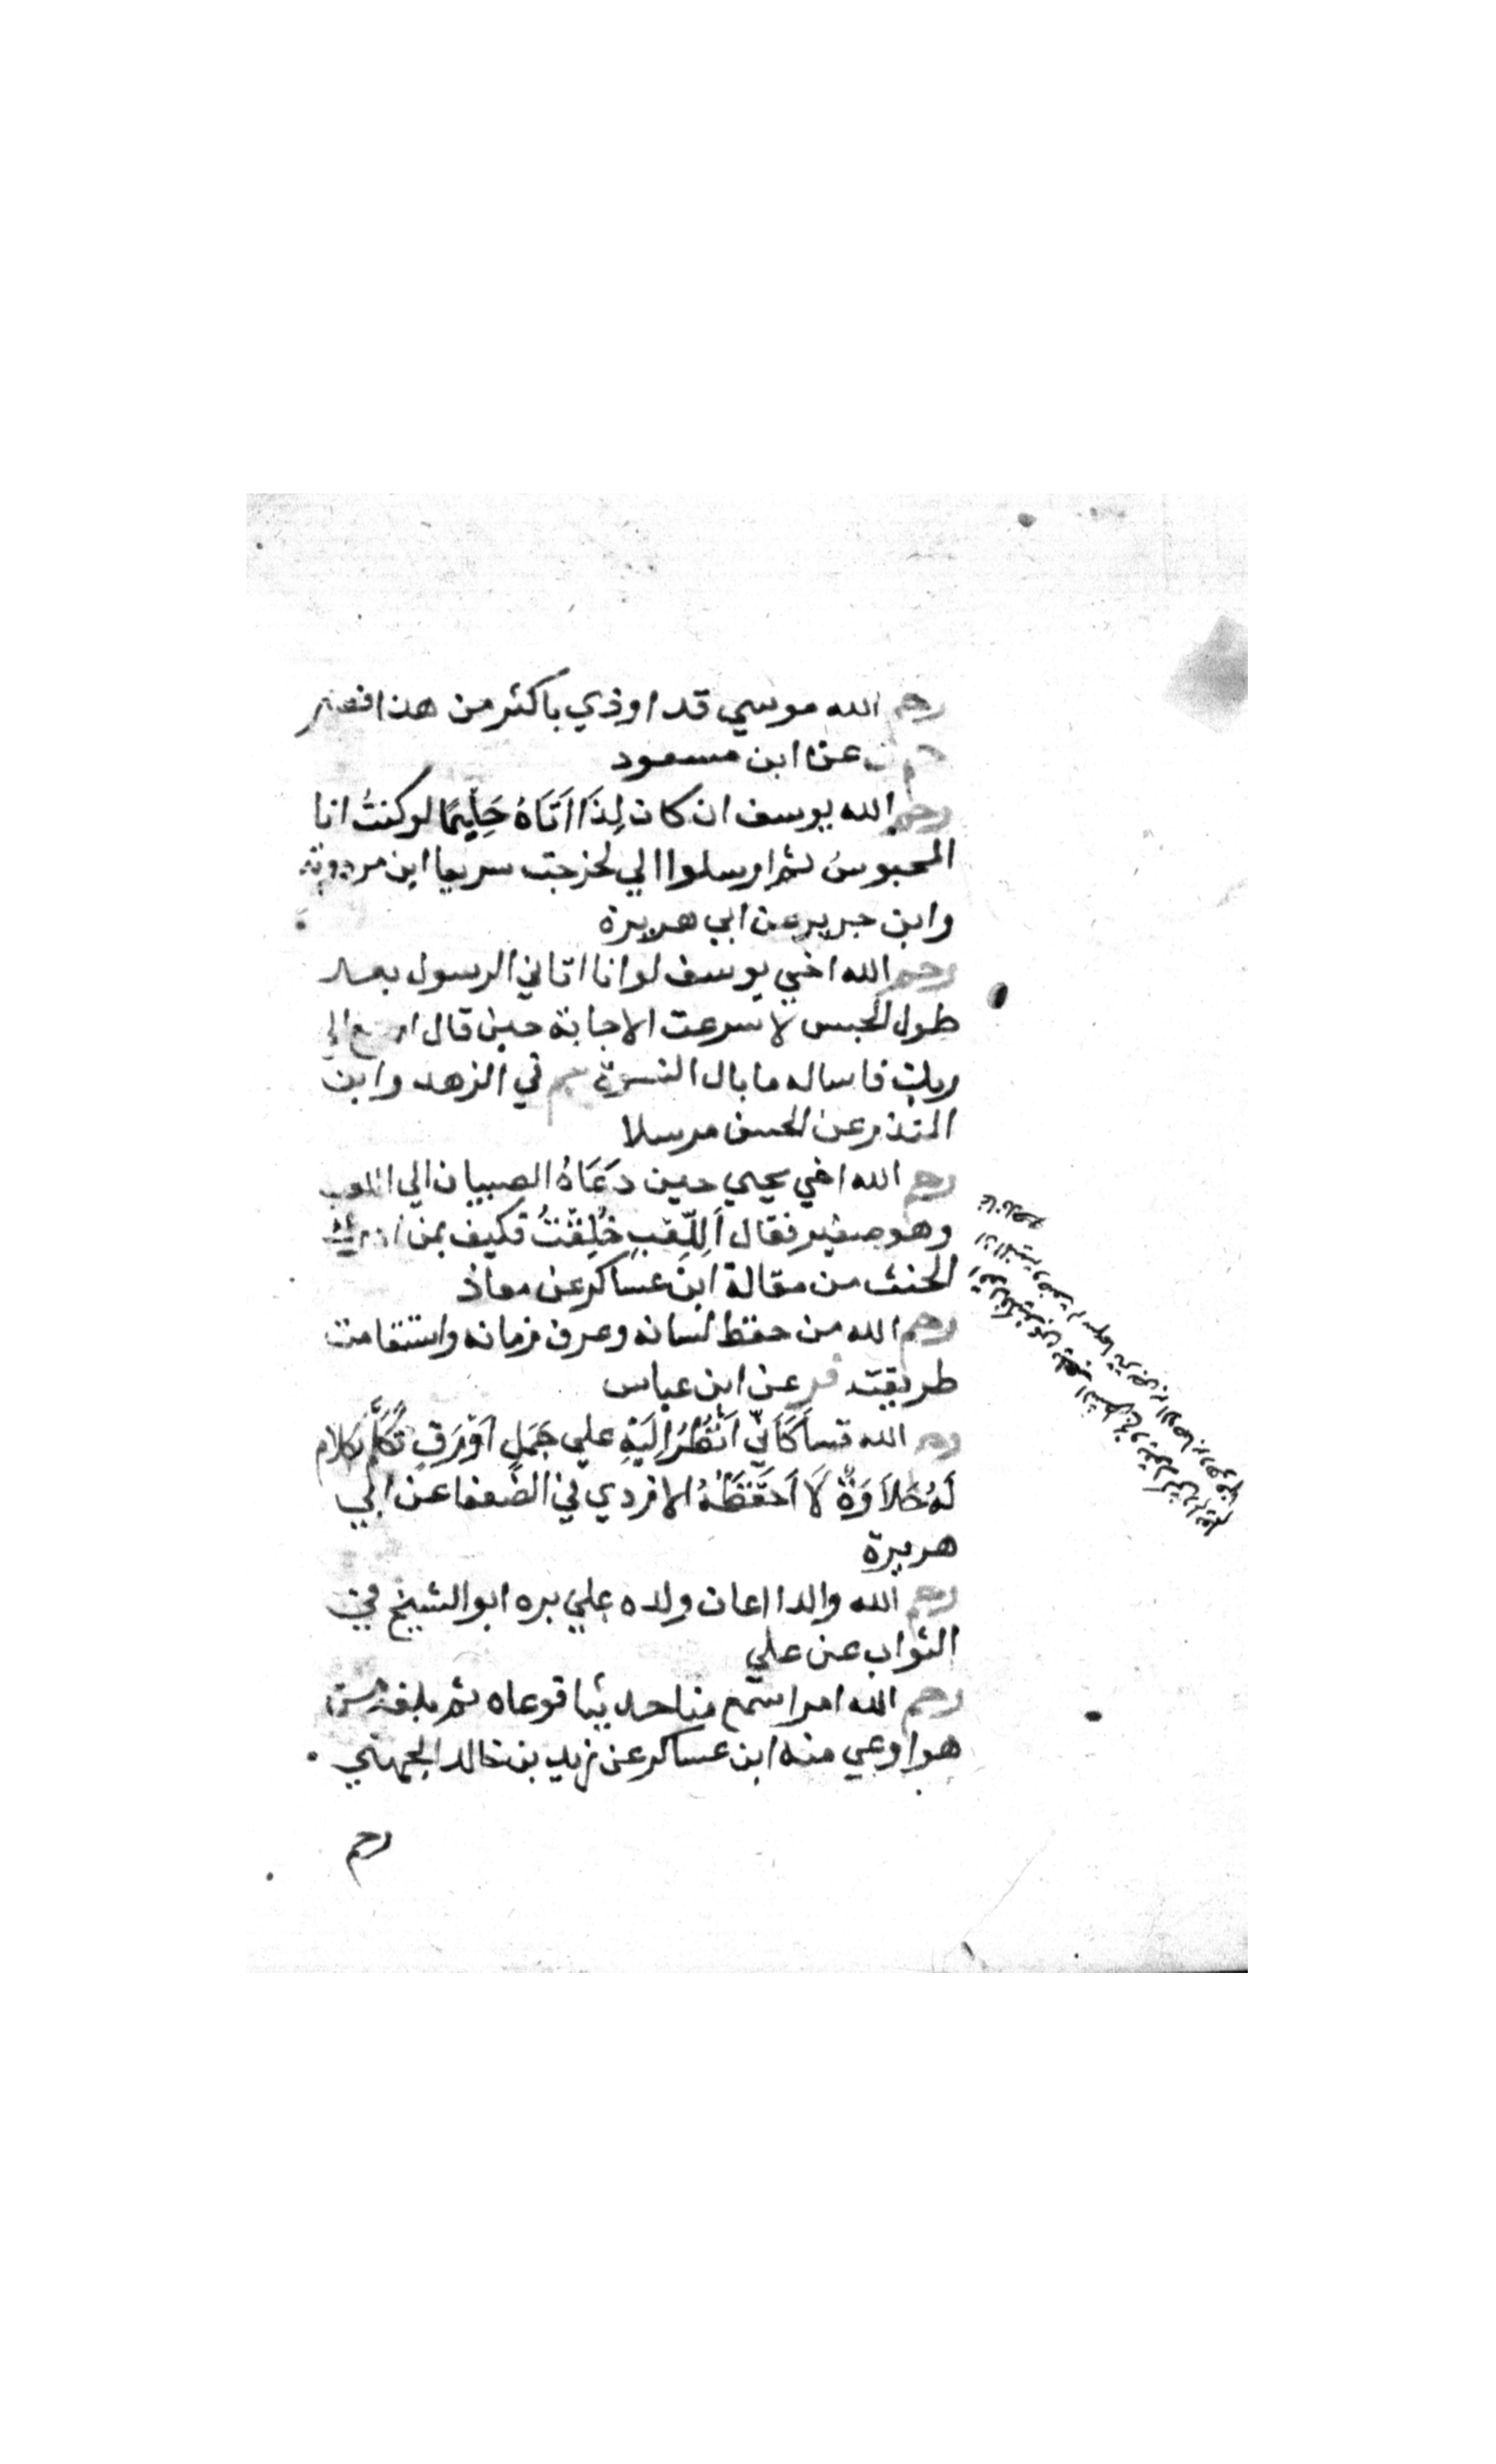 رحم الله موسي قد اوذي باكثر من هذا فصبر
عن ابن مسعود
رحم الله يوسف ان كان لِذَا اَنَاةُ حَلِيمًا لو كنتُ انا
المحبوسُ ثم ارسلوا الي لخرجت سريعا ابن مردويه
وابن جرير عن ابي هريرة
رحم الله اخي يوسف لو انا اتاني الرسول بعد
طول الحبس لاسرعت الاجابة حين قال ارجع الي
ربك فاساله ما بال النسوة حم في الزهد وابن
المنذر عن الحسن مرسلا
رحم الله اخي يحيي حين دَعَاهُ الصبيان الي اللعب
وهو صغير فقال اَلِلَّعِبِ خُلِقْتُ فكيف بمن ادرك
الحنث من مقالة ابن عساكر عن معاذ
رحم الله من حفظ لسانه وعرف زمانه واستقامت
طريقته فر عن ابن عباس
رحم الله قسا كَاَنِّي اَنْظُرُ اِلَيْهِ علي جَمَلٍ اَوْرَقٍ تَكَلَّمَ بكلام
لَهُ حَلاَوَةٌ لَا اَحْفَظُهُ الازدي في الضعفا عن ابي
هريرة
رحم الله والدا اعان ولده علي بره ابو الشيخ في
الثواب عن علي
رحم الله امرا سمع منا حديثا فوعاه ثم بلغه من
هو اوعي منه ابن عساكر عن زيد بن خالد الجهني
رحم